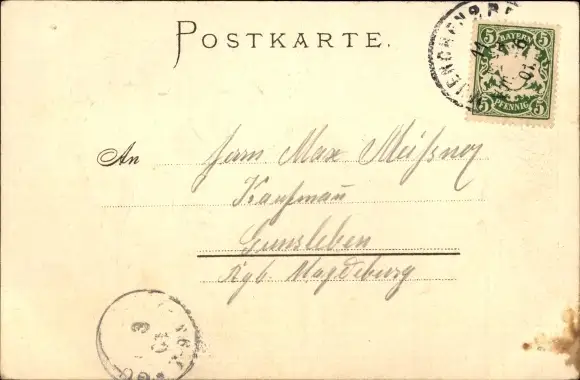 POSTKARTE.
MUENCHEN 2. B.P.
5 BAYERN 5
5 PFENNIG 5
An Herrn Max Meißner
Kaufmann
Gunsleben
Rgb. Magdeburg